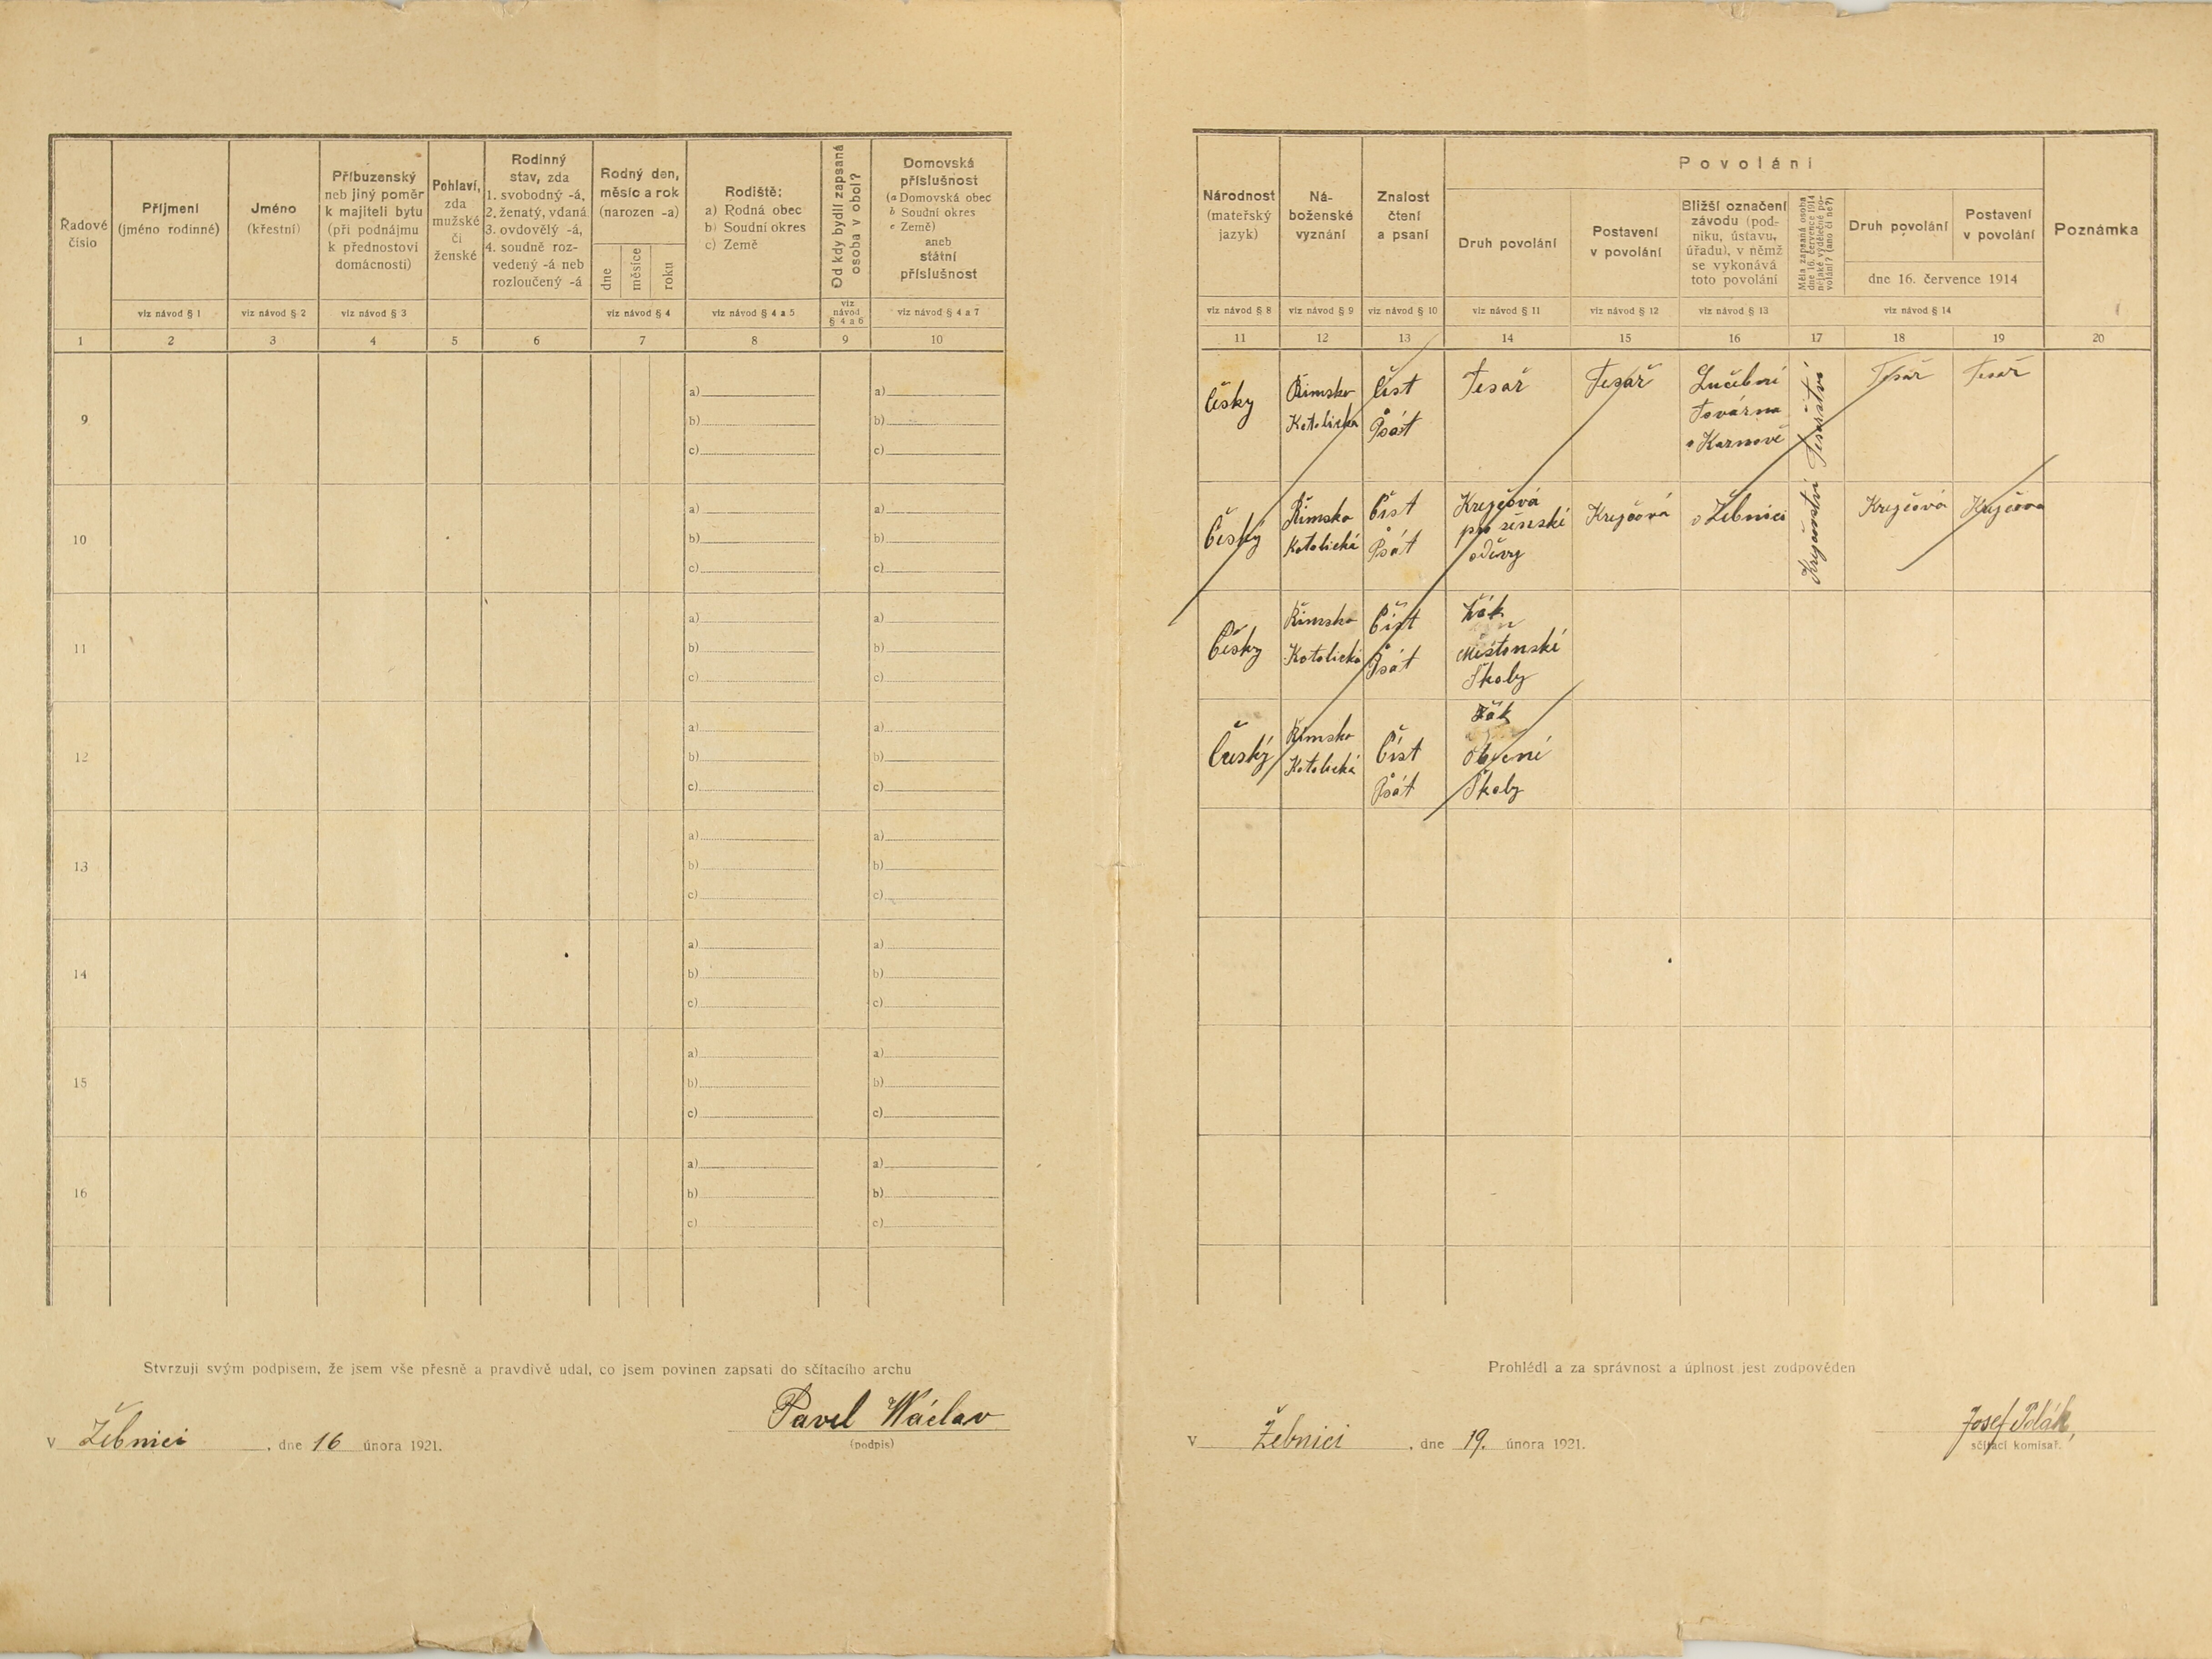 Řadové
číslo
Příjmení
(jméno rodinné)
viz návod § 1
Jméno
(křestní)
viz návod § 2
Příbuzenský
neb jiný poměr
k majiteli bytu
(při podnájmu
k přednostovi
domácnosti)
viz návod § 3
Pohlaví,
zda
mužské
či
ženské
Rodinný
stav, zda
1. svobodný -á,
2. ženatý, vdaná
3. ovdovělý -á,
4. soudně roz-
vedený -á neb
rozloučený -á
Rodný den,
měsíc a rok
(narozen -a)
dne
měsíce
roku
viz návod § 4
Rodiště:
a) Rodná obec
b) Soudní okres
c) Země
viz návod § 4 a 5
Od kdy bydlí zapsaná
osoba v obci?
viz
návod
§ 4 a 6
Domovská
příslušnost
(a Domovská obec
b Soudní okres
c Země)
aneb
státní
příslušnost
viz návod § 4 a 7
1 2 3 4 5 6 7 8 9 10
9
a) a)
b) b)
c) c)
10
a) a)
b) b)
c) c)
11
a) a)
b) b)
c) c)
12
a) a)
b) b)
c) c)
13
a) a)
b) b)
c) c)
14
a) a)
b) b)
c) c)
15
a) a)
b) b)
c) c)
16
a) a)
b) b)
c) c)
Stvrzuji svým podpisem, že jsem vše přesně a pravdivě udal, co jsem povinen zapsati do sčítacího archu
Pavel Wáclav
v Žebnici, dne 16 února 1921.
(podpis)
Národnost
(mateřský
jazyk)
viz návod § 8
Ná-
boženské
vyznání
viz návod § 9
Znalost
čtení
a psaní
viz návod § 10
Povolání
Druh povolání
viz návod § 11
Postavení
v povolání
viz návod § 12
Bližší označení
závodu (pod-
niku, ústavu,
úřadu), v němž
se vykonává
toto povolání
viz návod § 13
Měla zapsaná osoba
dne 16. července 1914
nějaké výdělečné po-
volání? (ano či ne?)
Druh povolání
Postavení
v povolání
dne 16. července 1914
viz návod § 14
Poznámka
11 12 13 14 15 16 17 18 19 20
česky
Římsko
Katolická
Číst
Psát
Tesař
Tesař
Lučební
Továrna
v Kaznově
Tesařství
Tesař
Tesař
Český
Římsko
Katolická
Číst
Psát
Krejčová
pro ženské
oděvy
Krejčová
v Žebnici
Krejčovství
Krejčová
Krejčova
Česky
Římsko
Katolická
Číst
Psát
žák
Měšťanské
Školy
Český
Římsko
Katolická
Číst
Psát
žák
Obecné
Školy
Prohlédl a za správnost a úplnost jest zodpověden
Josef Polák,
v Žebnici, dne 19. února 1921.
sčítací komisař.